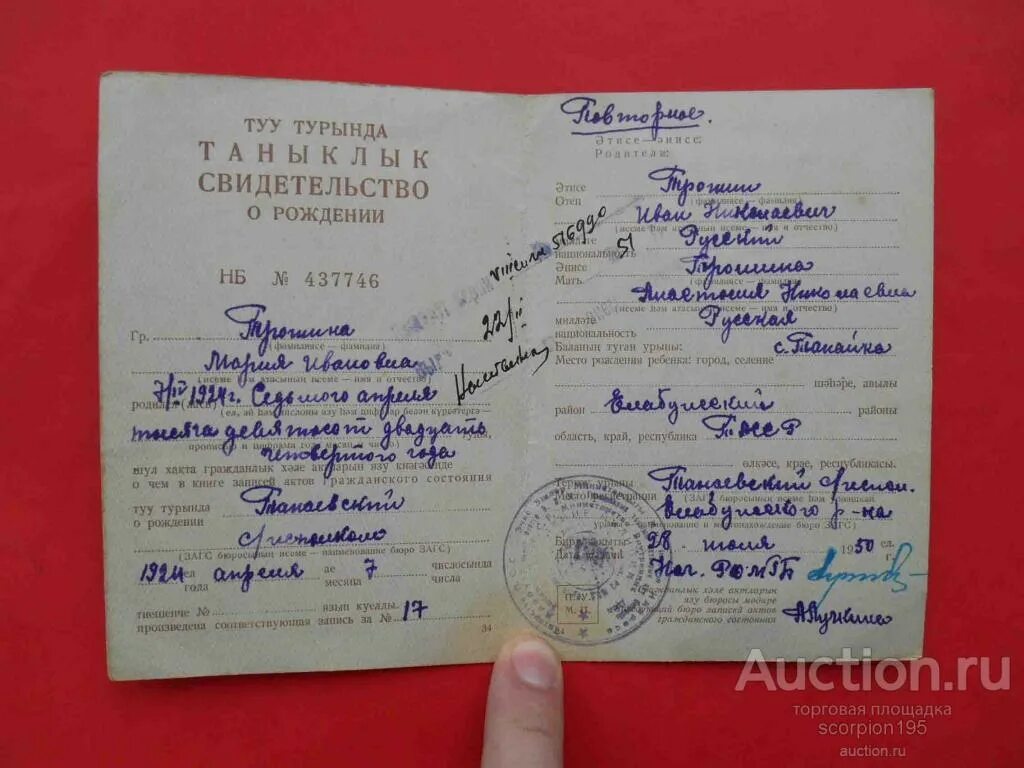 ТУУ ТУРЫНДА
ТАНЫКЛЫК
СВИДЕТЕЛЬСТВО
О РОЖДЕНИИ
НБ № 437746
Гр. Трошина
(фамилиясе — фамилия)
Мария Ивановна
(исеме һәм атасының исеме — имя и отчество)
7/IV 1924 г. Седьмого апреля
родился (лась)
(ел, ай һәм числоны язу һәм цифрлар белән күрсәтергә —
тысяча девятьсот двадцать
прописью и цифрами год, месяц и число)
четвертого года
шул хакта гражданлык хәле актларын язу кнәгәсендә
о чем в книге записей актов гражданского состояния
туу турында Танаевский
о рождении
(ЗАГС бюросының исеме — наименование бюро ЗАГС)
1924 ел апреля ае 7 числосында
года месяца числа
тиешенчә № язып куелды. 17
произведена соответствующая запись за №
34
Повторное.
Әтисе — әнисе:
Родители:
Әтисе Трошин
Отец (фамилиясе — фамилия)
Иван Николаевич
(исеме һәм атасының исеме — имя и отчество)
милләте Русский
национальность
Әнисе Трошина
Мать (фамилиясе — фамилия)
Анастасия Николаевна
(исеме һәм атасының исеме — имя и отчество)
милләте Русская
национальность
Баланың туган урыны: с. Танайка
Место рождения ребенка: город, селение
шәһәре, авылы
район Елабужский районы
область, край, республика ТАССР
өлкәсе, крае, республикасы.
Теркәү урыны Танаевский
Место регистрации (ЗАГС бюросының исеме һәм урнашкан
Елабужского р-на
урыны — наименование и местонахождение бюро ЗАГС)
28 июля 1950 ел.
Дата выдачи г.
Нач. РОМГБ
Гражданлык хәле актларын
язу бюросы мөдире
Заведующий бюро записей актов
гражданского состояния
М. П.
22/III
51
Auction.ru
торговая площадка
scorpion195
auction.ru